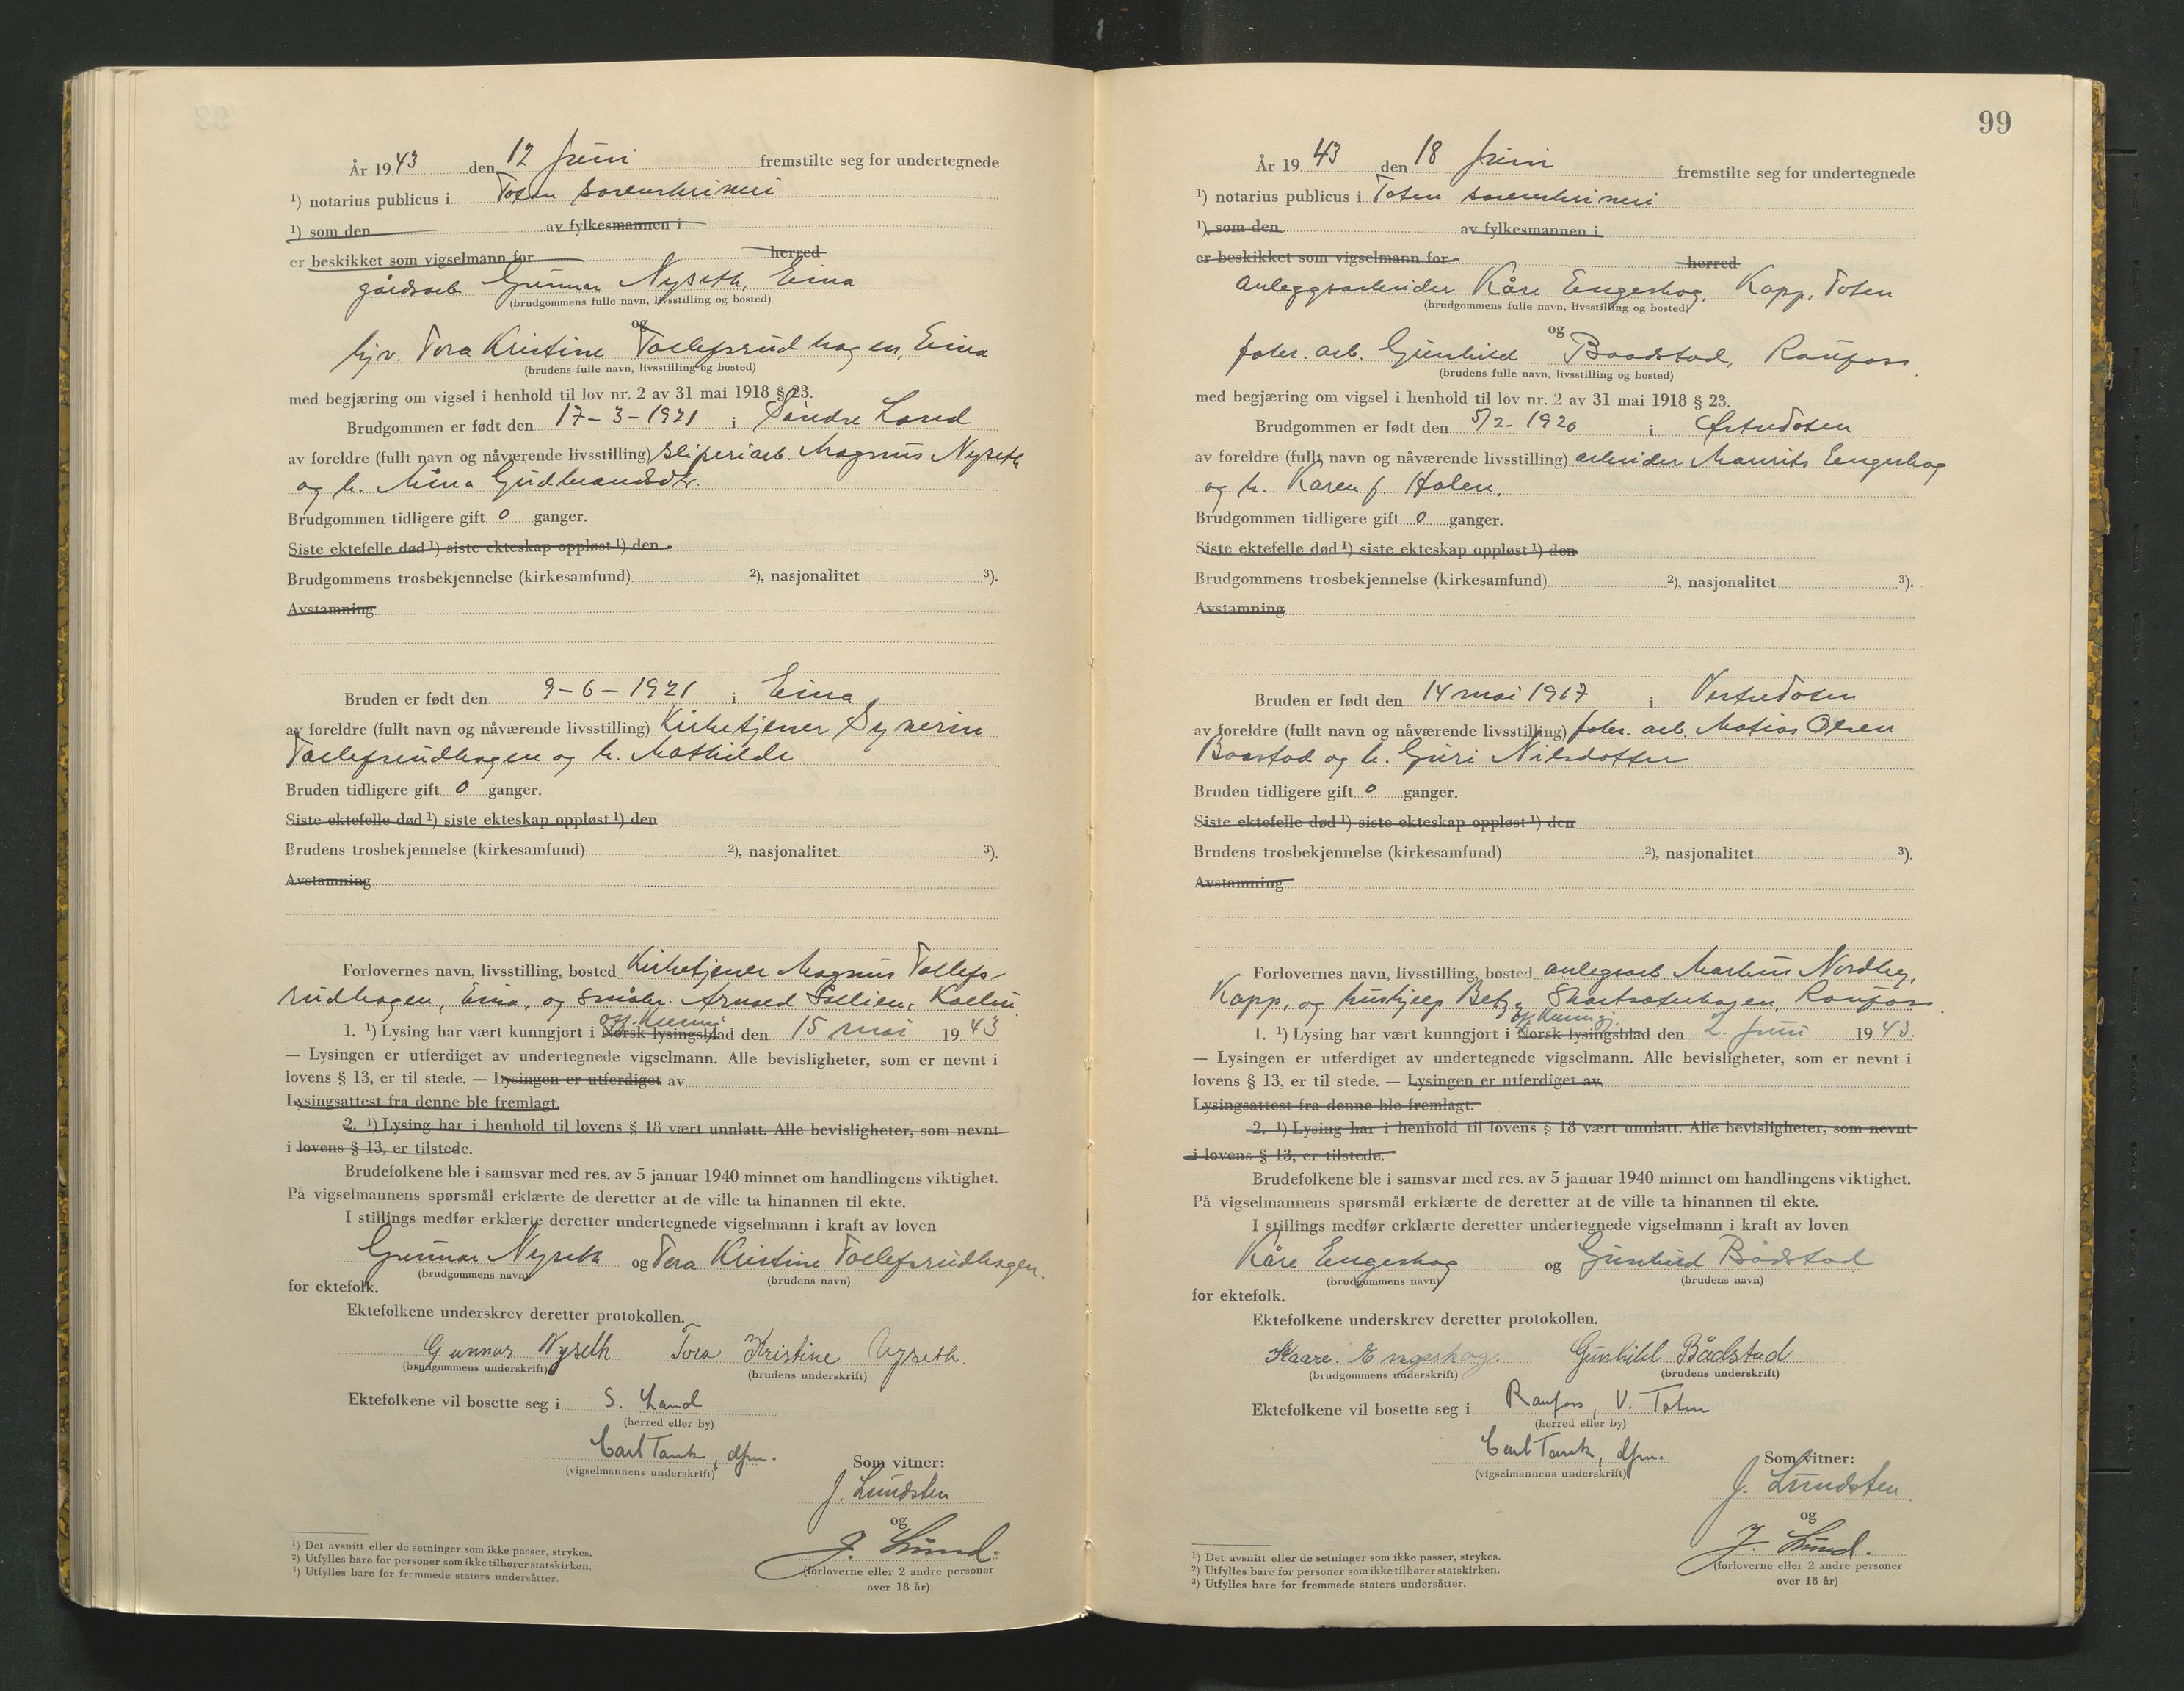 År 1943 den 12 Juni fremstilte seg for undertegnede
¹) notarius publicus i Toten sorenskriveri
¹) som den av fylkesmannen i
er beskikket som vigselmann for herred
gårdsarb. Gunnar Nyseth, Eina
(brudgommens fulle navn, livsstilling og bosted)
og
hj.v. Tora Kristine Tollefsrudhagen, Eina
(brudens fulle navn, livsstilling og bosted)
med begjæring om vigsel i henhold til lov nr. 2 av 31 mai 1918 § 23.
Brudgommen er født den 17-3-1921 i Søndre Land
av foreldre (fullt navn og nåværende livsstilling) sliperiarb. Magnus Nyseth
og h. Mina Gudbrandsdtr.
Brudgommen tidligere gift 0 ganger.
Siste ektefelle død ¹) siste ekteskap oppløst ¹) den
Brudgommens trosbekjennelse (kirkesamfund) ²), nasjonalitet ³).
Avstamning
Bruden er født den 9-6-1921 i Eina
av foreldre (fullt navn og nåværende livsstilling) Kirketjener Syverin
Tollefsrudhagen og h. Mathilde
Bruden tidligere gift 0 ganger.
Siste ektefelle død ¹) siste ekteskap oppløst ¹) den
Brudens trosbekjennelse (kirkesamfund) ²), nasjonalitet ³).
Avstamning
Forlovernes navn, livsstilling, bosted Kirketjener Magnus Tollefs-
rudhagen, Eina, og småbr. Arnold Sollien, Kolbu.
off. kunng.
1. ¹) Lysing har vært kunngjort i Norsk lysingsblad den 15 mai 1943
— Lysingen er utferdiget av undertegnede vigselmann. Alle bevisligheter, som er nevnt i
lovens § 13, er til stede. — Lysingen er utferdiget av
Lysingsattest fra denne ble fremlagt.
2. ¹) Lysing har i henhold til lovens § 18 vært unnlatt. Alle bevisligheter, som nevnt
i lovens § 13, er tilstede.
Brudefolkene ble i samsvar med res. av 5 januar 1940 minnet om handlingens viktighet.
På vigselmannens spørsmål erklærte de deretter at de ville ta hinannen til ekte.
I stillings medfør erklærte deretter undertegnede vigselmann i kraft av loven
Gunnar Nyseth og Tora Kristine Tollefsrudhagen.
(brudgommens navn) (brudens navn)
for ektefolk.
Ektefolkene underskrev deretter protokollen.
Gunnar Nyseth Tora Kristine Nyseth.
(brudgommens underskrift) (brudens underskrift)
Ektefolkene vil bosette seg i S. Land
(herred eller by)
Carl Tank, dfm.
(vigselmannens underskrift)
Som vitner:
J. Lundsten
og
J. Lund.
(forloverne eller 2 andre personer
over 18 år)
¹) Det avsnitt eller de setninger som ikke passer, strykes.
²) Utfylles bare for personer som ikke tilhører statskirken.
³) Utfylles bare for fremmede staters undersåtter.
99
År 1943 den 18 Juni fremstilte seg for undertegnede
¹) notarius publicus i Toten sorenskriveri
¹) som den av fylkesmannen i
er beskikket som vigselmann for herred
anleggsarbeider Kåre Engeskog, Kapp, Toten
(brudgommens fulle navn, livsstilling og bosted)
og
fabr. arb. Gunhild Baadstad, Raufoss.
(brudens fulle navn, livsstilling og bosted)
med begjæring om vigsel i henhold til lov nr. 2 av 31 mai 1918 § 23.
Brudgommen er født den 5/2-1920 i Østre Toten
av foreldre (fullt navn og nåværende livsstilling) arbeider Maurits Engeskog
og h. Karen f. Holen.
Brudgommen tidligere gift 0 ganger.
Siste ektefelle død ¹) siste ekteskap oppløst ¹) den
Brudgommens trosbekjennelse (kirkesamfund) ²), nasjonalitet ³).
Avstamning
Bruden er født den 14 mai 1917 i Vestre Toten
av foreldre (fullt navn og nåværende livsstilling) fabr. arb. Matias Olsen
Baastad og h. Guri Nilsdotter
Bruden tidligere gift 0 ganger.
Siste ektefelle død ¹) siste ekteskap oppløst ¹) den
Brudens trosbekjennelse (kirkesamfund) ²), nasjonalitet ³).
Avstamning
Forlovernes navn, livsstilling, bosted anlegsarb. Markus Nordby,
Kapp, og hushjelp Betzy Skartsæterhagen, Raufoss.
off. kunngj.
1. ¹) Lysing har vært kunngjort i Norsk lysingsblad den 2. Juni 1943.
— Lysingen er utferdiget av undertegnede vigselmann. Alle bevisligheter, som er nevnt i
lovens § 13, er til stede. — Lysingen er utferdiget av
Lysingsattest fra denne ble fremlagt.
2. ¹) Lysing har i henhold til lovens § 18 vært unnlatt. Alle bevisligheter, som nevnt
i lovens § 13, er tilstede.
Brudefolkene ble i samsvar med res. av 5 januar 1940 minnet om handlingens viktighet.
På vigselmannens spørsmål erklærte de deretter at de ville ta hinannen til ekte.
I stillings medfør erklærte deretter undertegnede vigselmann i kraft av loven
Kåre Engeskog og Gunhild Bådstad
(brudgommens navn) (brudens navn)
for ektefolk.
Ektefolkene underskrev deretter protokollen.
Kaare. Engeskog. Gunhild Bådstad
(brudgommens underskrift) (brudens underskrift)
Ektefolkene vil bosette seg i Raufoss, V. Toten
(herred eller by)
Carl Tank, dfm.
(vigselmannens underskrift)
Som vitner:
J. Lundsten
og
J. Lund.
(forloverne eller 2 andre personer
over 18 år)
¹) Det avsnitt eller de setninger som ikke passer, strykes.
²) Utfylles bare for personer som ikke tilhører statskirken.
³) Utfylles bare for fremmede staters undersåtter.